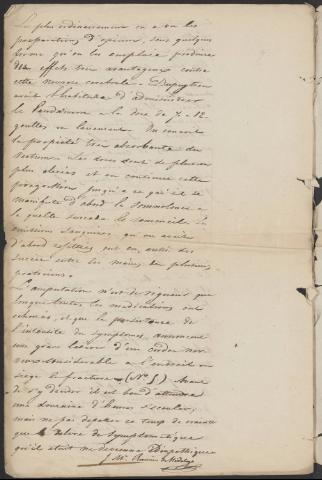 Le plus ordinairement on a vu les
préparations d'opium, sous quelque
forme qu'on les emploie produire
des effets très avantageux contre
cette névrose cérébrale. Dupuytren
avait l'habitude d'administrer
le laudanum à la dose de 7 à 12
gouttes en lavement. On connait
la propriété très absorbante du
rectum. Les doses sont de plus en
plus élevées et on continue cette
jusqu'à ce qu'il se
manifeste d'abord la somnolence à
laquelle succède le sommeil. Les
émissions sanguines, qu'on avait
d'abord rejetées ont eu aussi des
succès entre les mains de plusieurs
praticiens.
L'amputation n'est de rigueur que
lorsque toutes les médications ont
échoué, et que la persistance de
l'intensité des symptômes, annoncent
une grave lésion d'un cordon ner-
veux considérable à l'endroit où
siège la fracture. (No 5) Avant
de s'y décider il est bon d'attendre
une douzaine d'heures s'écouler;
mais ne pas dépasser ce temps de crainte
que le délire de symptomatique
qu'il était ne devienne idiopathique